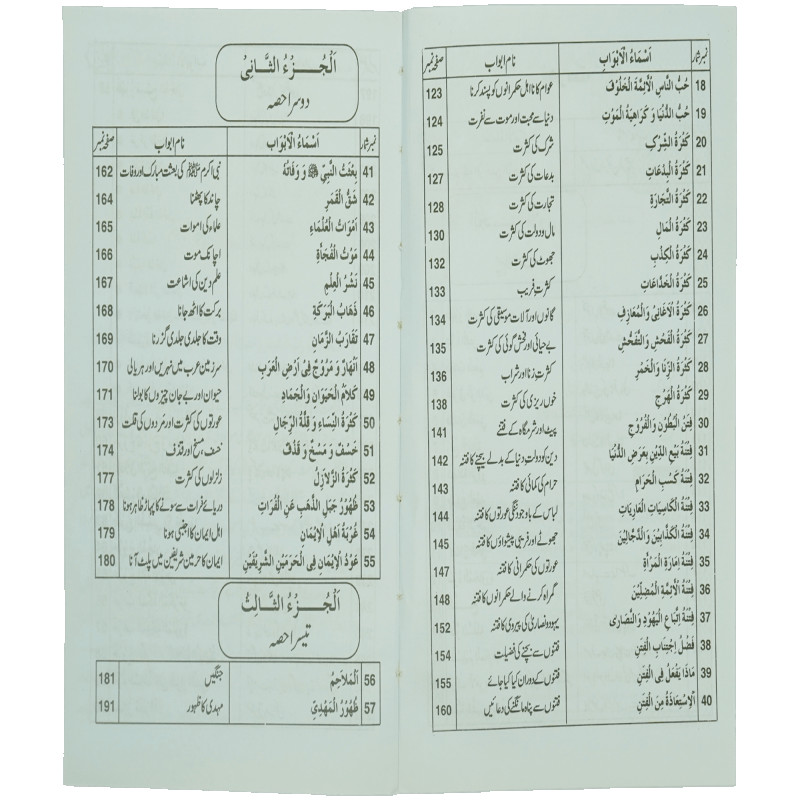 نمبر شمار اَسْمَاءُ الْاَبْوَابِ نام ابواب صفحہ نمبر
18 حُبُّ النَّاسِ الْاَئِمَّةَ الْخَلُوْفَ عوام کا نااہل حکمرانوں کو پسند کرنا 123
19 حُبُّ الدُّنْيَا وَ كَرَاهِيَةُ الْمَوْتِ دنیا سے محبت اور موت سے نفرت 124
20 كَثْرَةُ الشِّرْكِ شرک کی کثرت 125
21 كَثْرَةُ الْبِدْعَاتِ بدعات کی کثرت 127
22 كَثْرَةُ التِّجَارَةِ تجارت کی کثرت 128
23 كَثْرَةُ الْمَالِ مال و دولت کی کثرت 130
24 كَثْرَةُ الْكِذْبِ جھوٹ کی کثرت 132
25 كَثْرَةُ الْخَدَّاعَاتِ کثرتِ فریب 133
26 كَثْرَةُ الْاَغَانِيْ وَالْمَعَازِفِ گانوں اور آلات موسیقی کی کثرت 134
27 كَثْرَةُ الْفَحْشِ وَالتَّفَحُّشِ بے حیائی اور فحش گوئی کی کثرت 135
28 كَثْرَةُ الزِّنَا وَالْخَمْرِ کثرتِ زنا اور شراب 136
29 كَثْرَةُ الْهَرْجِ خوں ریزی کی کثرت 138
30 فِتَنُ الْبُطُوْنِ وَالْفُرُوْجِ پیٹ اور شرمگاہ کے فتنے 141
31 فِتْنَةُ بَيْعِ الدِّيْنِ بِعَرَضِ الدُّنْيَا دین کو دولتِ دنیا کے بدلے بیچنے کا فتنہ 142
32 فِتْنَةُ كَسْبِ الْحَرَامِ حرام کی کمائی کا فتنہ 143
33 فِتْنَةُ الْكَاسِيَاتِ الْعَارِيَاتِ لباس کے باوجود ننگی عورتوں کا فتنہ 144
34 فِتْنَةُ الْكَذَّابِيْنَ وَالدَّجَّالِيْنَ جھوٹے اور فریبی پیشواؤں کا فتنہ 145
35 فِتْنَةُ اِمَارَةِ الْمَرْأَةِ عورتوں کی حکمرانی کا فتنہ 147
36 فِتْنَةُ الْاَئِمَّةِ الْمُضِلِّيْنَ گمراہ کرنے والے حکمرانوں کا فتنہ 148
37 فِتْنَةُ اِتِّبَاعِ الْيَهُوْدِ وَالنَّصَارٰى یہود و نصاریٰ کی پیروی کا فتنہ 152
38 فَضْلُ اِجْتِنَابِ الْفِتَنِ فتنوں سے بچنے کی فضیلت 154
39 مَاذَا يَفْعَلُ فِى الْفِتَنِ فتنوں کے دوران کیا کیا جائے 155
40 اَلْاِسْتِعَاذَةُ مِنَ الْفِتَنِ فتنوں سے پناہ مانگنے کی دعائیں 160
اَلْجُزْءُ الثَّانِىْ
دوسرا حصہ
نمبر شمار اَسْمَاءُ الْاَبْوَابِ نام ابواب صفحہ نمبر
41 بِعْثَتُ النَّبِيِّ ﷺ وَ وَفَاتُهُ نبی اکرم ﷺ کی بعثت مبارک اور وفات 162
42 شَقُّ الْقَمَرِ چاند کا پھٹنا 164
43 اَمْوَاتُ الْعُلَمَاءِ علماء کی اموات 165
44 مَوْتُ الْفُجَاةِ اچانک موت 166
45 نَشْرُ الْعِلْمِ علم دین کی اشاعت 167
46 ذَهَابُ الْبَرَكَةِ برکت کا اٹھ جانا 168
47 تَقَارَبُ الزَّمَانِ وقت کا جلدی جلدی گزرنا 169
48 اَنْهَارٌ وَ مَرُوْجٌ فِىْ اَرْضِ الْعَرَبِ سرزمین عرب میں نہریں اور ہریالی 170
49 كَلَامُ الْحَيَوَانِ وَالْجَمَادِ حیوان اور بے جان چیزوں کا بولنا 171
50 كَثْرَةُ النِّسَاءِ وَ قِلَّةُ الرِّجَالِ عورتوں کی کثرت اور مَردوں کی قلت 173
51 خَسْفٌ وَ مَسْخٌ وَ قَذْفٌ خسف، مسخ اور قذف 174
52 كَثْرَةُ الزَّلَازِلِ زلزلوں کی کثرت 177
53 ظُهُوْرُ جَبَلِ الذَّهَبِ عَنِ الْفُرَاتِ دریائے فرات سے سونے کا پہاڑ ظاہر ہونا 178
54 غُرْبَةُ اَهْلِ الْاِيْمَانِ اہل ایمان کا اجنبی ہونا 179
55 عَوْدُ الْاِيْمَانِ فِى الْحَرَمَيْنِ الشَّرِيْفَيْنِ ایمان کا حرمین شریفین میں پلٹ آنا 180
اَلْجُزْءُ الثَّالِثُ
تیسرا حصہ
56 اَلْمَلَاحِمُ جنگیں 181
57 ظُهُوْرُ الْمَهْدِيِّ مہدی کا ظہور 191